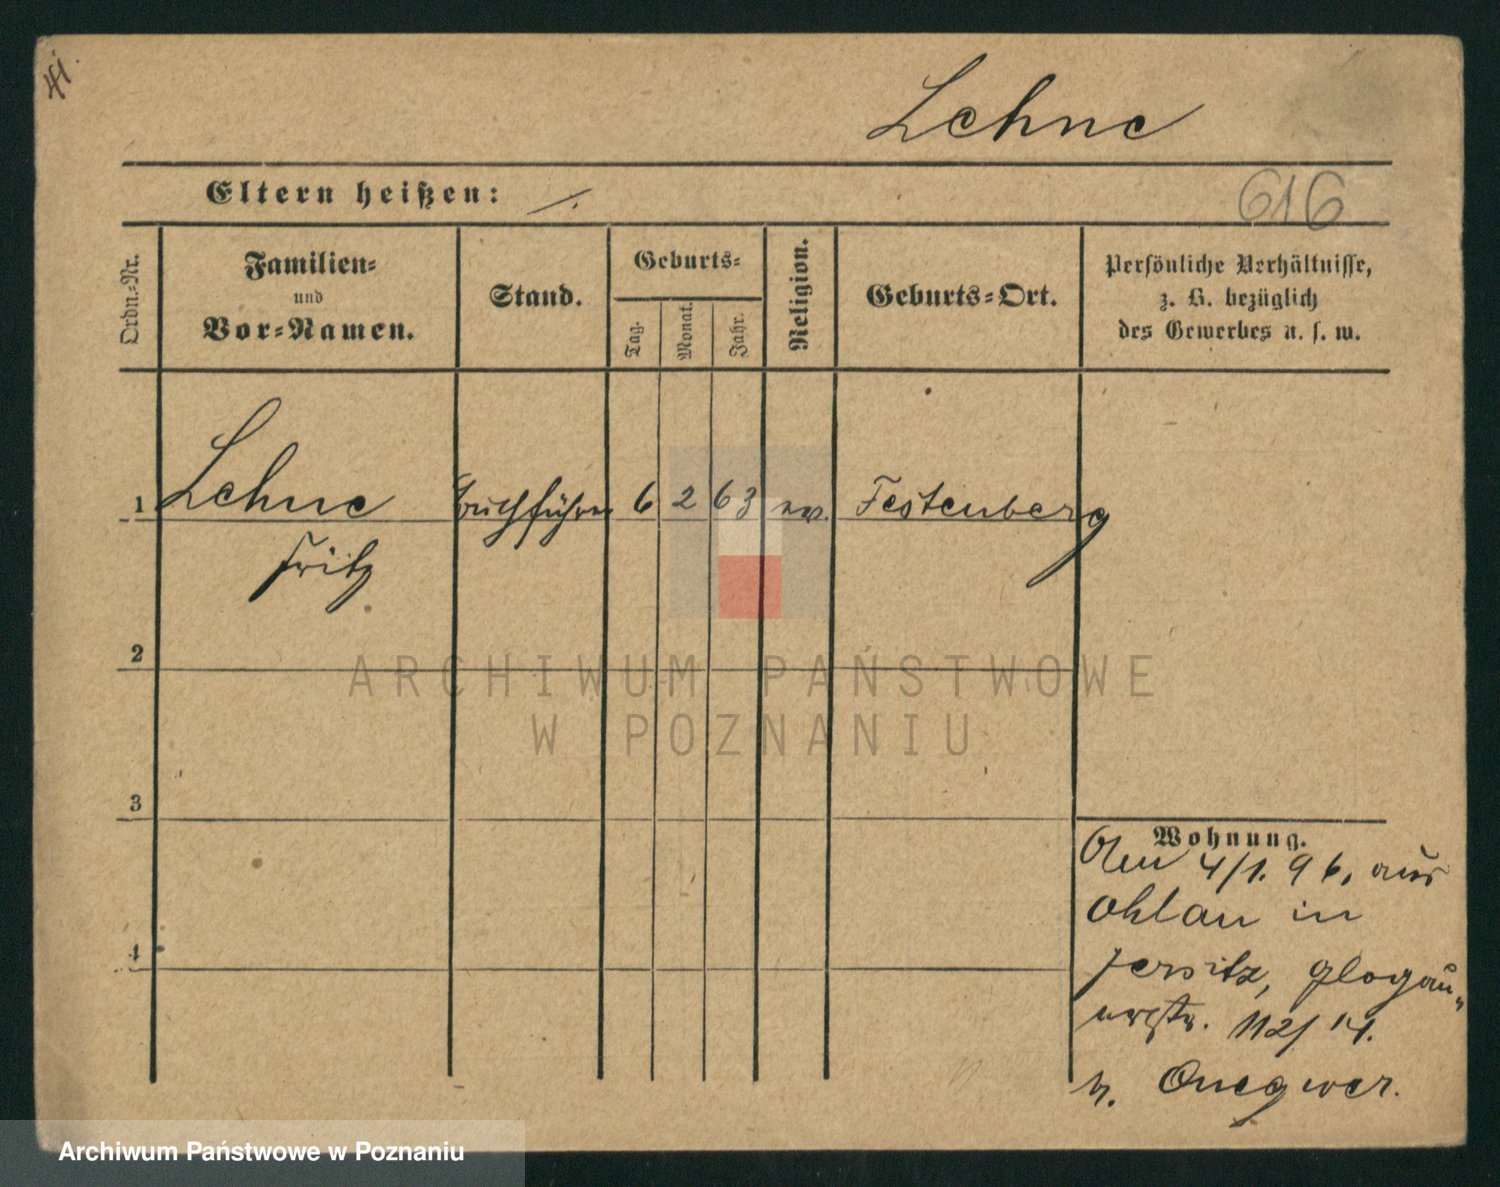 41.
Lehne
Eltern heißen: ⁒
616
Ordn.=Nr.
Familien=
und
Vor=Namen.
Stand.
Geburts=
Tag.
Monat.
Jahr.
Religion.
Geburts=Ort.
Persönliche Verhältnisse,
z. B. bezüglich
des Gewerbes u. s. w.
1 Lehne Buchführer 6 2 63 ev. Festenberg
Fritz
2
ARCHIWUM PAŃSTWOWE
W POZNANIU
3
Wohnung.
Am 4/1. 96, aus
Ohlau in
Jersitz, Glogau„
erstr. 112/14.
b.
4
Archiwum Państwowe w Poznaniu